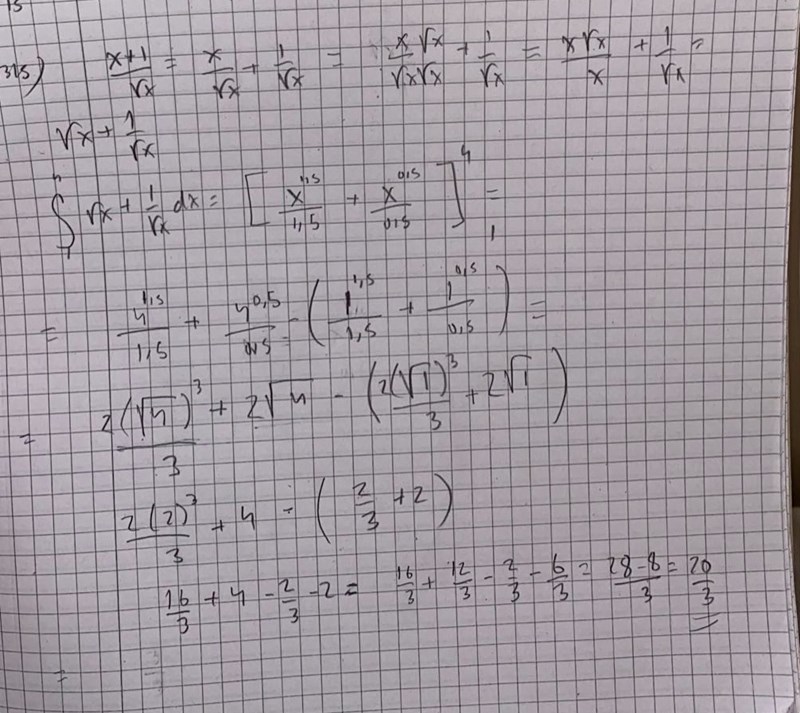 15
315) x+1/√x = x/√x + 1/√x = x√x/√x√x + 1/√x = x√x/x + 1/√x =
√x + 1/√x
∫₁⁴ √x + 1/√x dx = [x^1,5/1,5 + x^0,5/0,5]₁⁴ =
= 4^1,5/1,5 + 4^0,5/0,5 - (1^1,5/1,5 + 1^0,5/0,5) =
= 2(√4)³/3 + 2√4 - (2(√1)³/3 + 2√1)
2(2)³/3 + 4 - (2/3 + 2)
16/3 + 4 - 2/3 - 2 = 16/3 + 12/3 - 2/3 - 6/3 = 28-8/3 = 20/3
=